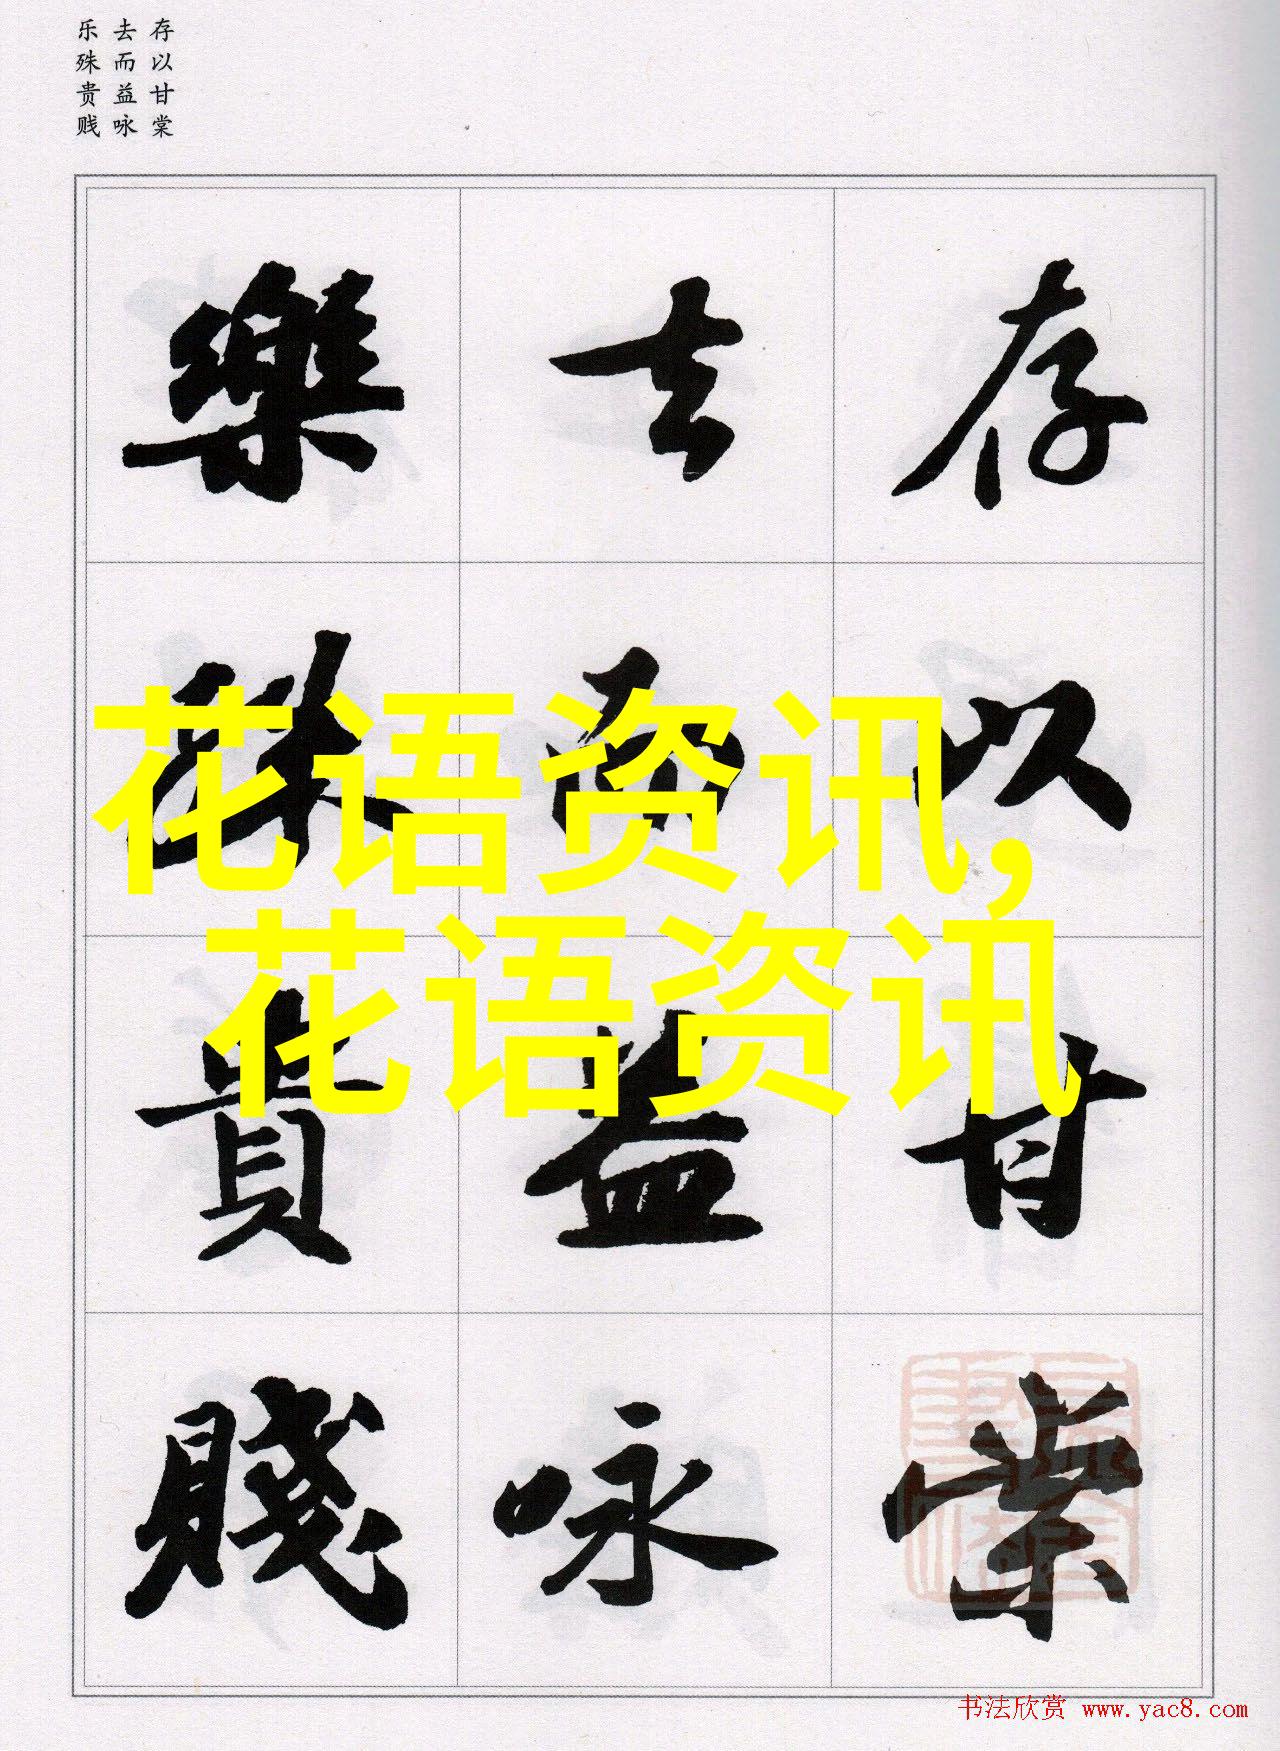 存以甘棠
去而益咏
乐殊贵贱
存以甘棠
去而益咏
樂殊貴賤
花语资讯,
花语资讯
书法欣赏 www.yac8.com